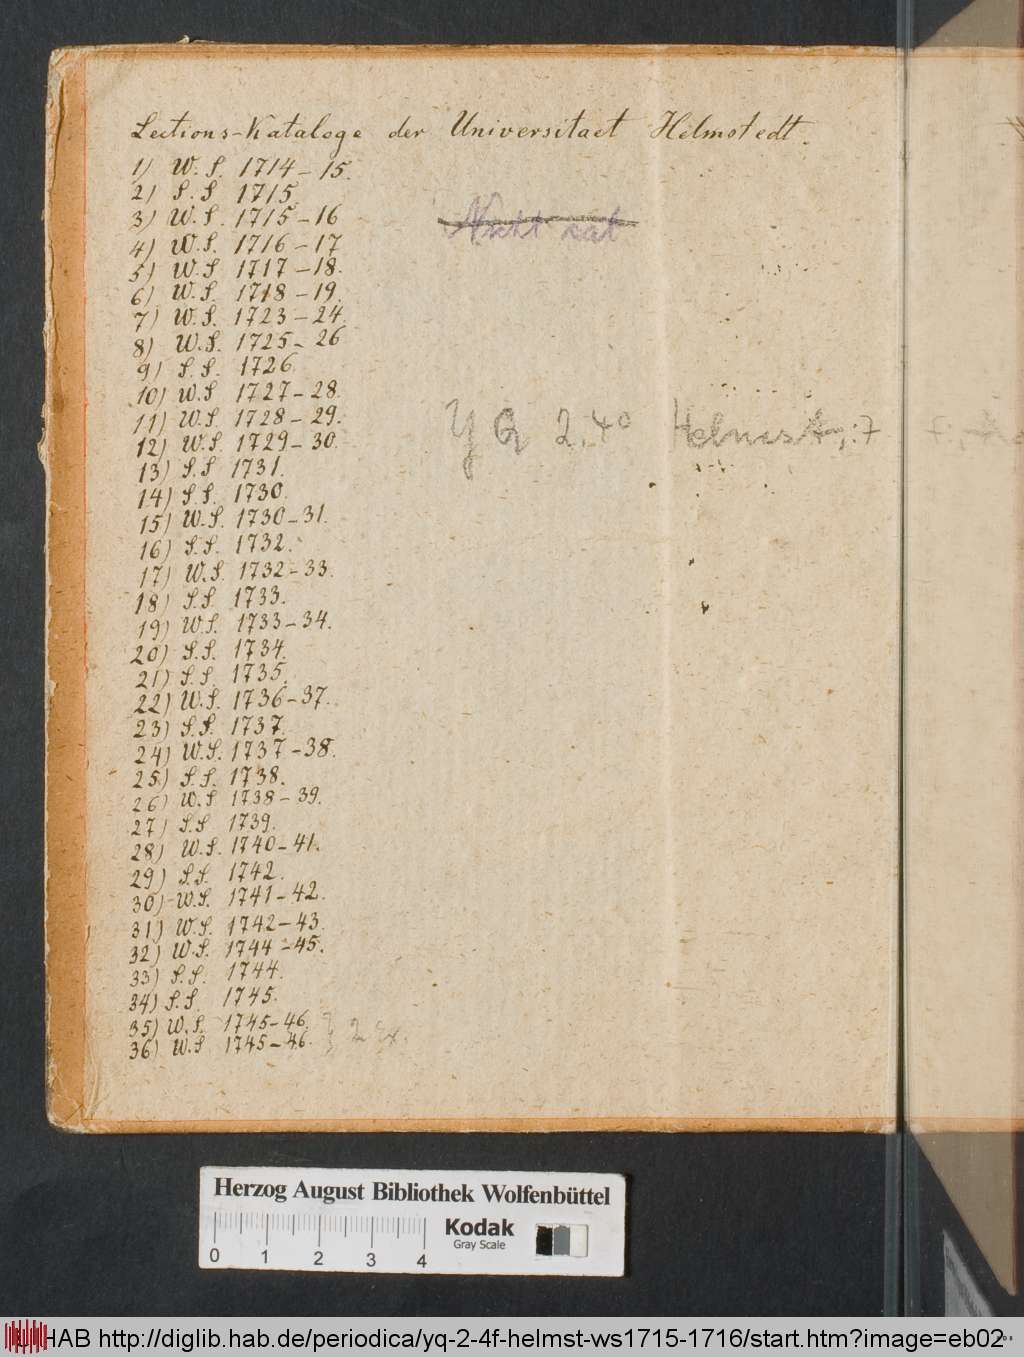 Lections-Kataloge der Universitaet Helmstedt.
1) W. S. 1714-15.
2) S. S 1715.
3) W. S. 1715-16
4) W. S. 1716-17
5) W. S 1717-18.
6) W. S. 1718-19.
7) W. S. 1723-24.
8) W. S. 1725-26
9) S. S. 1726.
10) W. S 1727-28.
11) W. S. 1728-29.
12) W. S. 1729-30.
13) S. S 1731.
14) S. S. 1730.
15) W. S. 1730-31.
16) S. S. 1732.
17) W. S. 1732-33.
18) S. S. 1733.
19) W. S. 1733-34.
20) S. S. 1734.
21) S. S. 1735.
22) W. S. 1736-37.
23) S. S. 1737.
24) W. S. 1737-38.
25) S. S. 1738.
26) W. S 1738-39.
27) S. S 1739.
28) W. S. 1740-41.
29) S. S. 1742.
30) W. S. 1741-42.
31) W. S. 1742-43.
32) W. S. 1744-45.
33) S. S. 1744.
34) S. S. 1745.
35) W. S. 1745-46.
36) W. S 1745-46. } 2 Ex.
Nicht kat
YQ 2.4° Helmst.
Herzog August Bibliothek Wolfenbüttel
0 1 2 3 4
Kodak
Gray Scale
HAB http://diglib.hab.de/periodica/yq-2-4f-helmst-ws1715-1716/start.htm?image=eb02